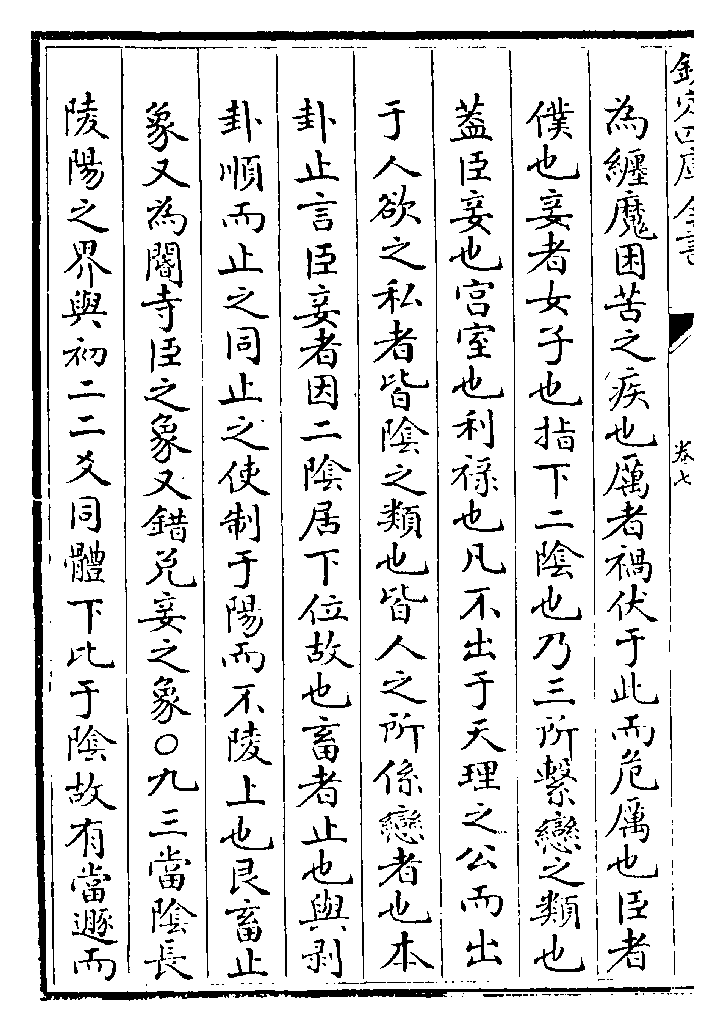 欽定四庫全書
卷七
為纏魔困苦之疾也厲者禍伏于此而危厲也臣者
僕也妾者女子也指下二陰也乃三所繫戀之類也
蓋臣妾也宫室也利祿也凡不出于天理之公而出
于人欲之私者皆陰之類也皆人之所係戀者也本
卦止言臣妾者因二陰居下位故也畜者止也與剥
卦順而止之同止之使制于陽而不陵上也艮畜止
象又為閽寺臣之象又錯兌妾之象○九三當陰長
陵陽之界與初二二爻同體下比于陰故有當遯而